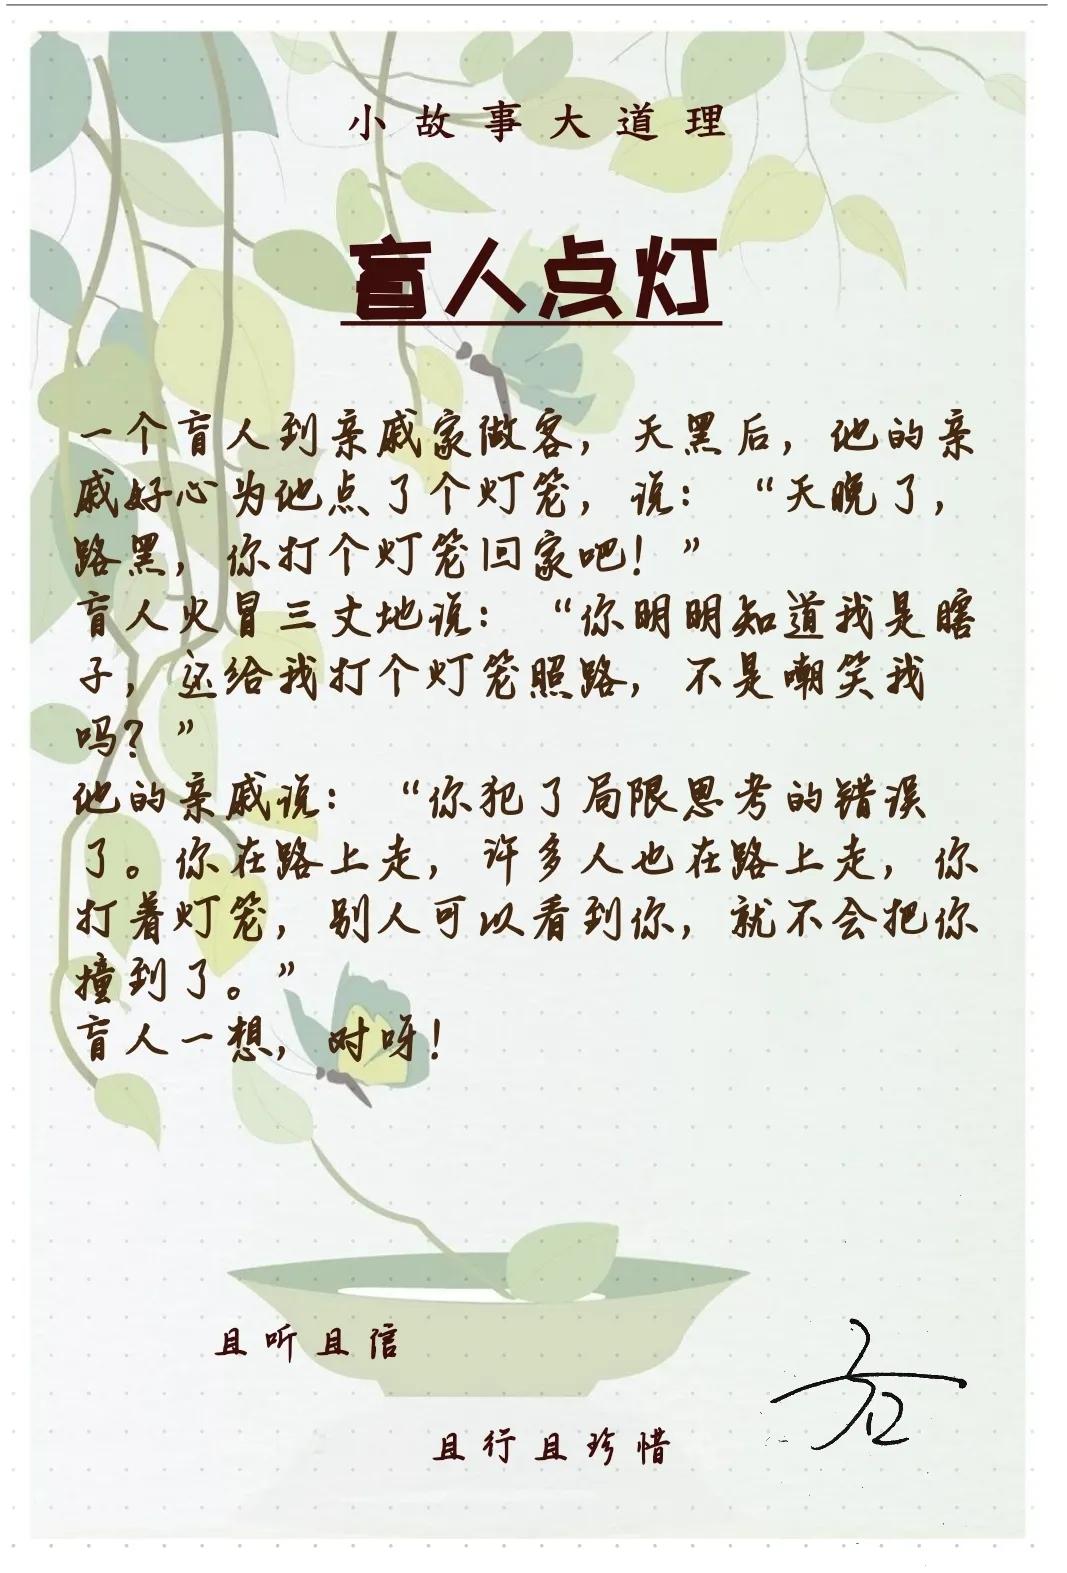 小故事大道理
盲人点灯
一个盲人到亲戚家做客，天黑后，他的亲
戚好心为他点了个灯笼，说：“天晚了，
路黑，你打个灯笼回家吧！”
盲人火冒三丈地说：“你明明知道我是瞎
子，还给我打个灯笼照路，不是嘲笑我
吗？”
他的亲戚说：“你犯了局限思考的错误
了。你在路上走，许多人也在路上走，你
打着灯笼，别人可以看到你，就不会把你
撞到了。”
盲人一想，对呀！
且听且信
且行且珍惜